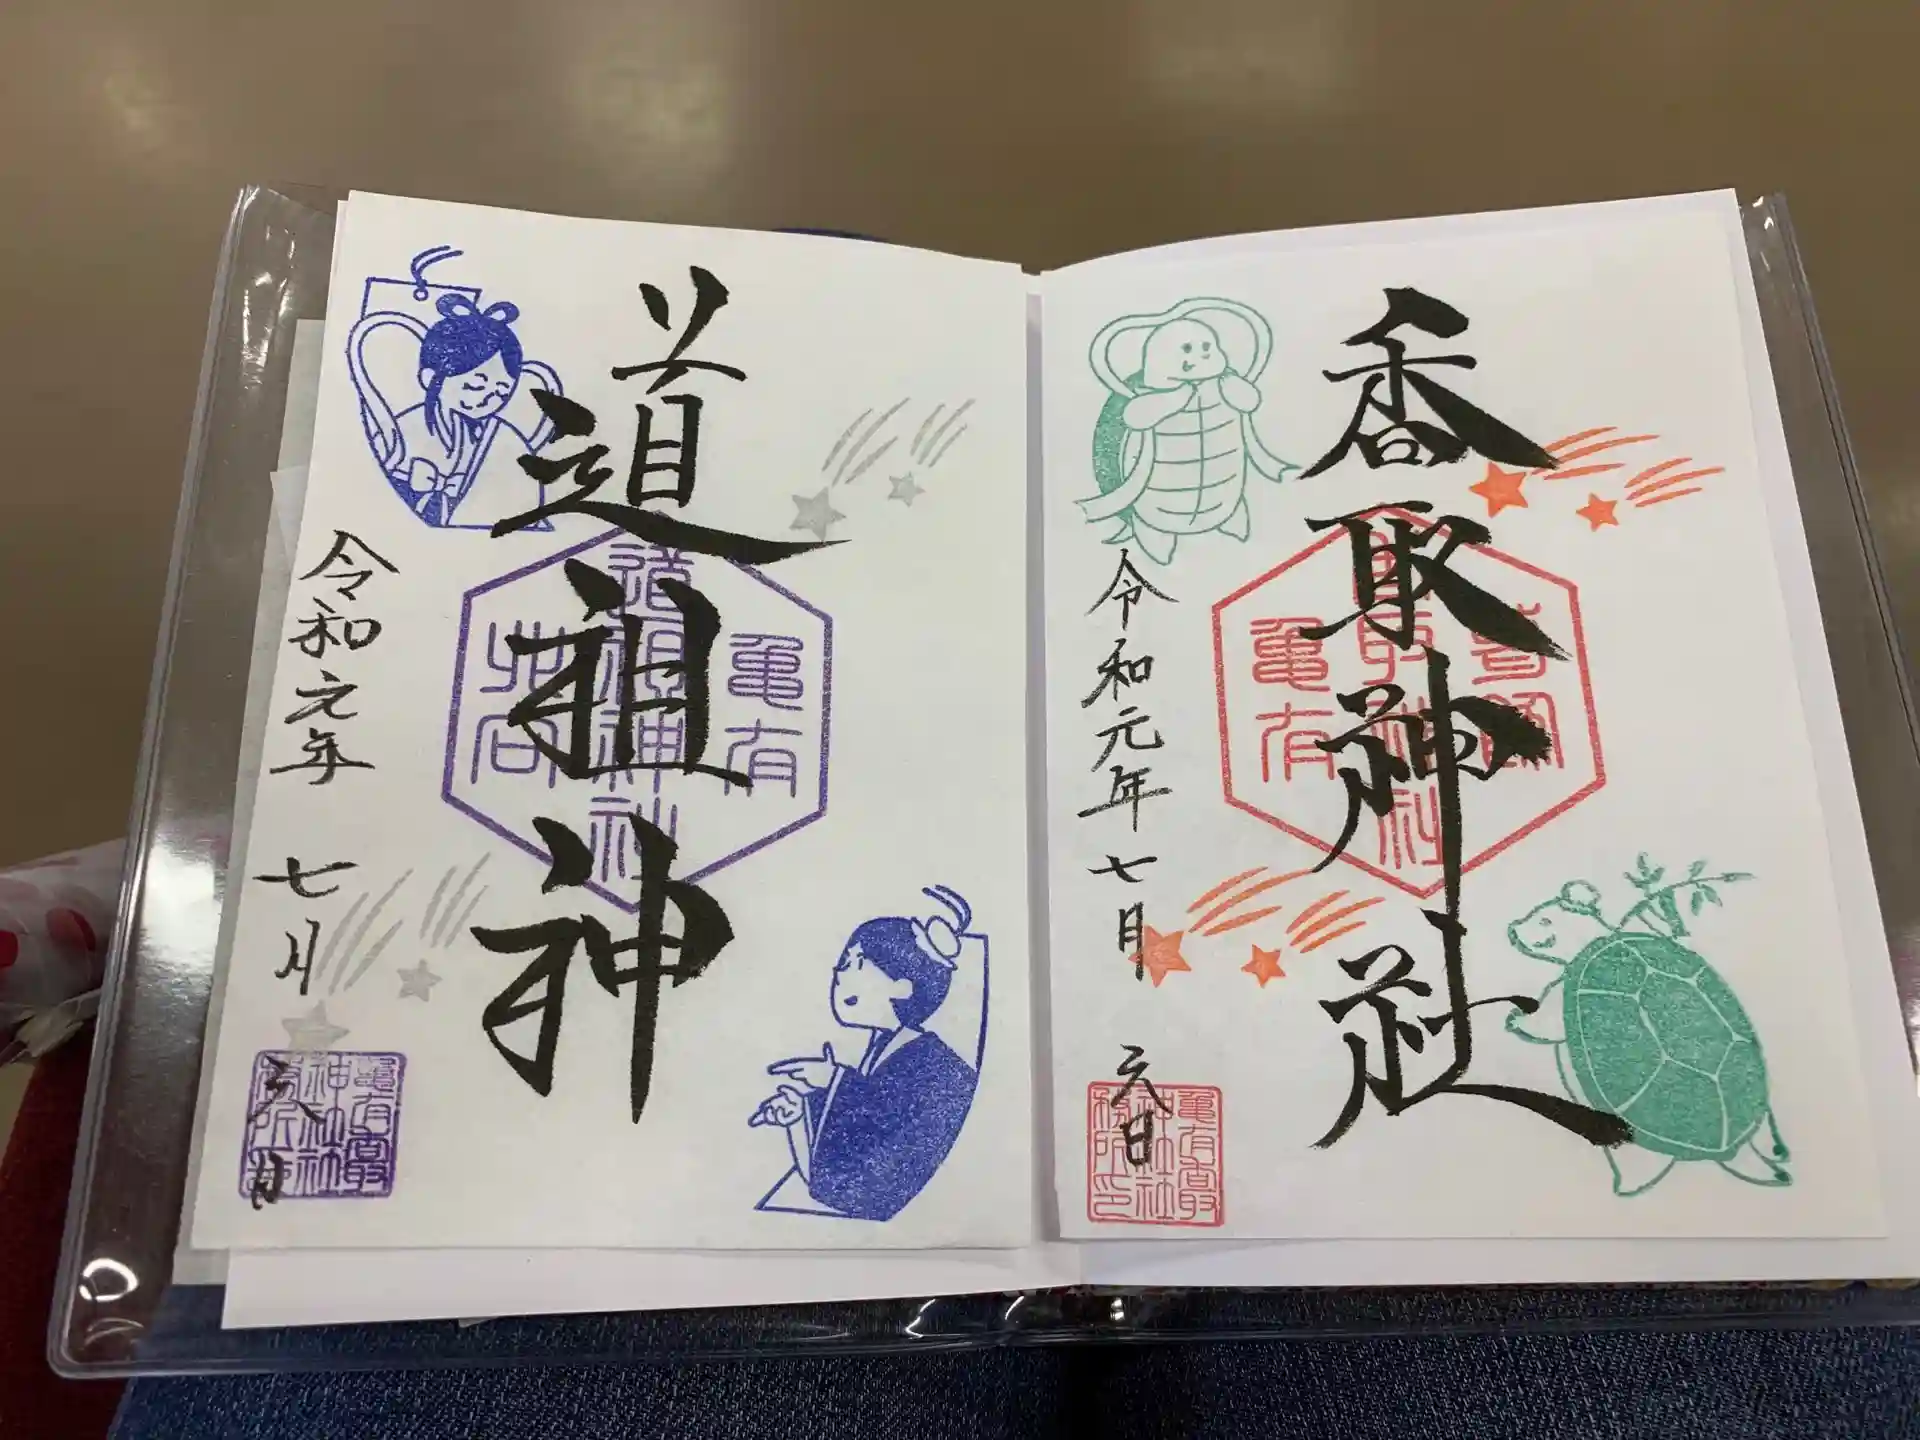 香取神社
亀有
令和元年七月六日
亀有香取
神社社
務所印
道祖神
亀有
道祖神社
令和元年七月六日
亀有香取
神社社
務所印